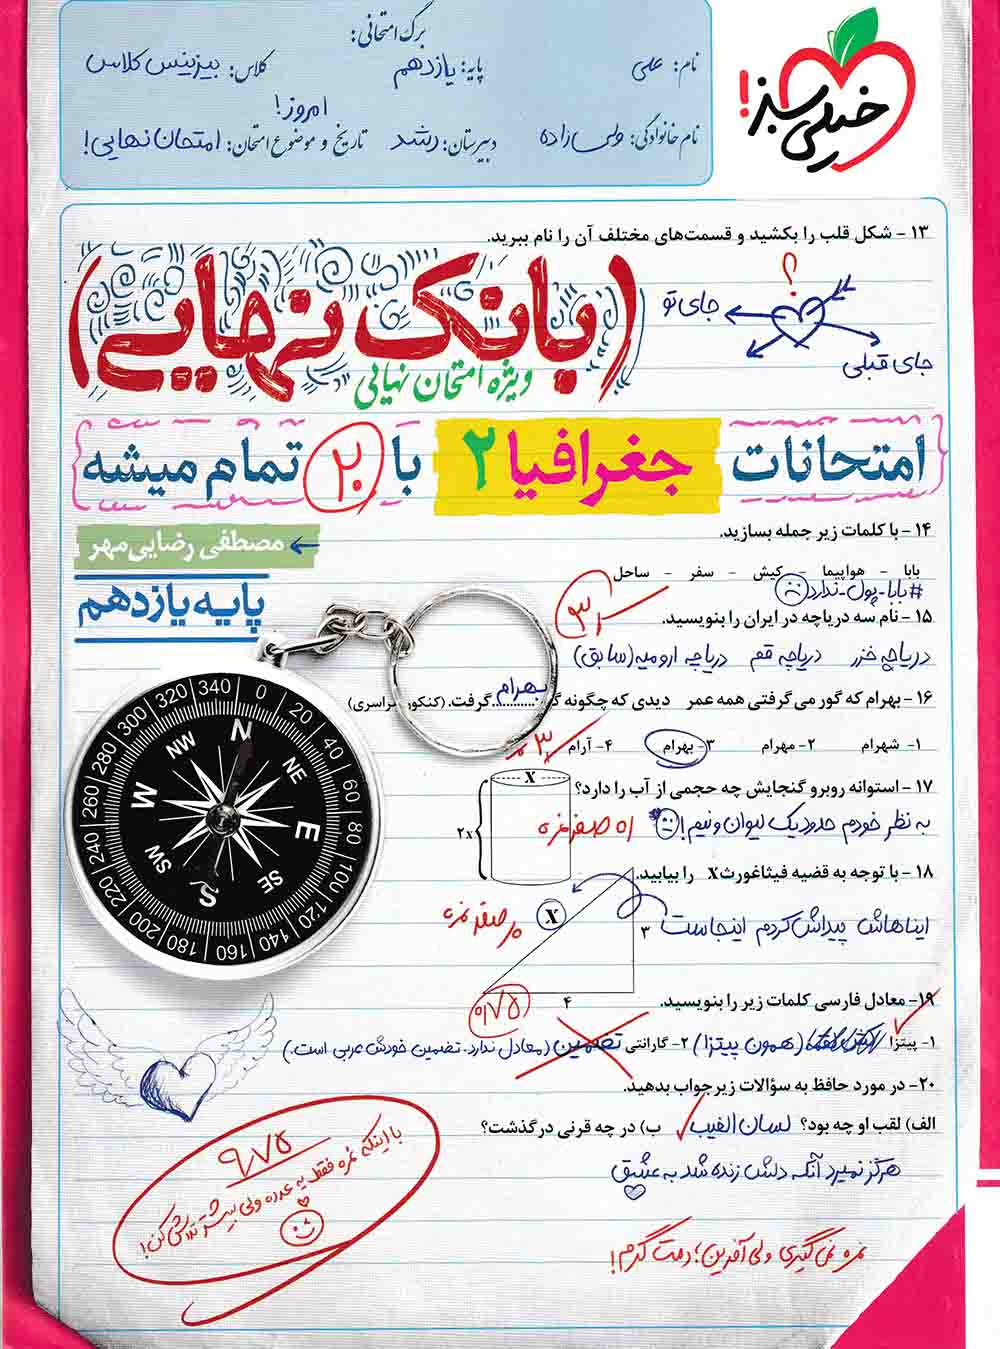 برگ امتحانی:
نام: علی
پایه: یازدهم
کلاس: بیزینس کلاس
نام خانوادگی: ولی زاده
دبیرستان: رشد
تاریخ و موضوع امتحان: امروز! امتحان نهایی!
خیلی سبز!
۱۳ - شکل قلب را بکشید و قسمت‌های مختلف آن را نام ببرید.
؟
جای تو
جای قبلی
(بانک نهایی)
ویژه امتحان نهایی
امتحانات جغرافیا ۲ با ۲۰ تمام میشه
مصطفی رضایی‌مهر
پایه یازدهم
۱۴ - با کلمات زیر جمله بسازید.
بابا - هواپیما - کیش - سفر - ساحل
#بابا-پول-ندارد
۱۵ - نام سه دریاچه در ایران را بنویسید.
دریاچه خزر دریاچه قم دریاچه ارومیه (سابق)
۱۶ - بهرام که گور می‌گرفتی همه عمر دیدی که چگونه گور بهرام گرفت. (کنکور سراسری)
۱- شهرام ۲- مهرام ۳- بهرام ۴- آرام
۱۷ - استوانه روبرو گنجایش چه حجمی از آب را دارد؟
X
۲x
به نظر خودم حدود یک لیوان و نیم!
۱۸ - با توجه به قضیه فیثاغورث X را بیابید.
ایناهاش پیداش کردم اینجاست
X
۳
۴
صفر نمره
۰/۷۵
۱۹- معادل فارسی کلمات زیر را بنویسید.
۱- پیتزا (همون پیتزا) ۲- گارانتی تضمین (معادل ندارد. تضمین خودش عربی است.)
۲۰- در مورد حافظ به سؤالات زیر جواب بدهید.
الف) لقب او چه بود؟ لسان الغیب ب) در چه قرنی درگذشت؟
هرگز نمیرد آنکه دلش زنده شد به عشق
۹/۷۵
با اینکه نمره فقط یه عدده ولی بیشتر تلاش کن!
نمره نمی‌گیری ولی آفرین؛ دمت گرم!
0 20 40 60 80 100 120 140 160 180 200 220 240 260 280 300 320 340
N NE E SE S SW W NW